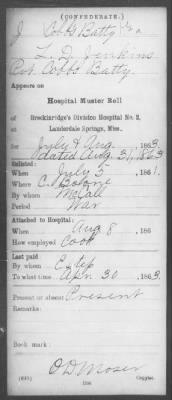 (CONFEDERATE.)
J Cobb's Batty
L. D. Jenkins
Pvt. Cobb's Batty.
Appears on
Hospital Muster Roll
of
Breckinridge's Division Hospital No. 2,
at
Lauderdale Springs, Miss.,
for July & Aug., 1863.
dated Aug 31, 1863
Enlisted:
When July 5, 1861.
Where C. Boone
By whom McCall
Period War
Attached to Hospital:
When Aug 8, 186
How employed Cook
Last paid
By whom Estep
To what time Apr. 30, 1863.
Present or absent Present
Remarks:
Book mark:
O D Moser
Copyist.